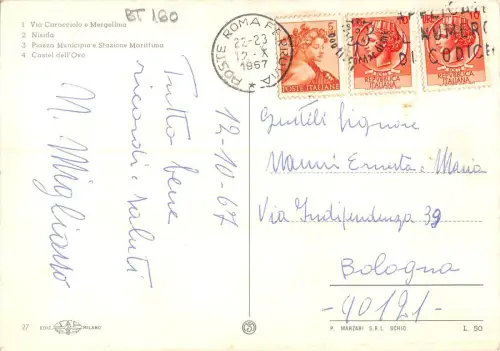 1 Via Caracciolo e Mergellina
2 Nisida
3 Piazza Municipio e Stazione Marittima
4 Castel dell'Ovo
BT 160
POSTE ROMA FERROVIA
22-23
12.X
1967
NUMERO
DI CODICE
POSTE ITALIANE
REPUBBLICA ITALIANA
REPUBBLICA ITALIANA
12-10-67
Tutto bene
ricordi e saluti
N. Migliasso
Gentili Signore
Nanni Ernesta e Maria
Via Indipendenza 39
Bologna
-40121-
27 EDIZ. SAF MILANO
P. MARZARI S.R.L. SCHIO
L. 50